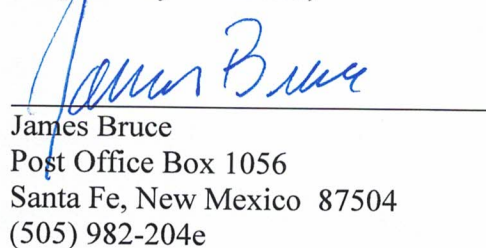 James Bruce
James Bruce
Post Office Box 1056
Santa Fe, New Mexico 87504
(505) 982-204e